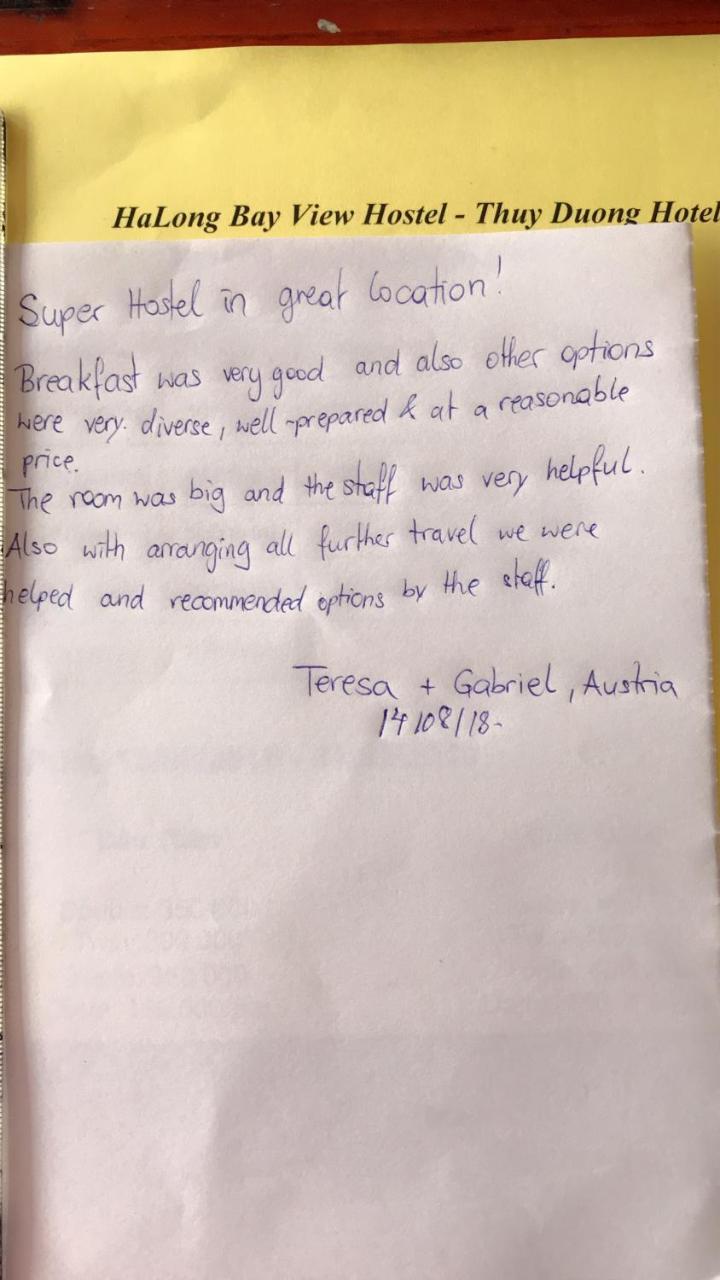 HaLong Bay View Hostel - Thuy Duong Hotel
Super Hostel in great location!
Breakfast was very good and also other options
were very diverse, well-prepared & at a reasonable
price.
The room was big and the staff was very helpful.
Also with arranging all further travel we were
helped and recommended options by the staff.
Teresa + Gabriel, Austria
14/08/18-